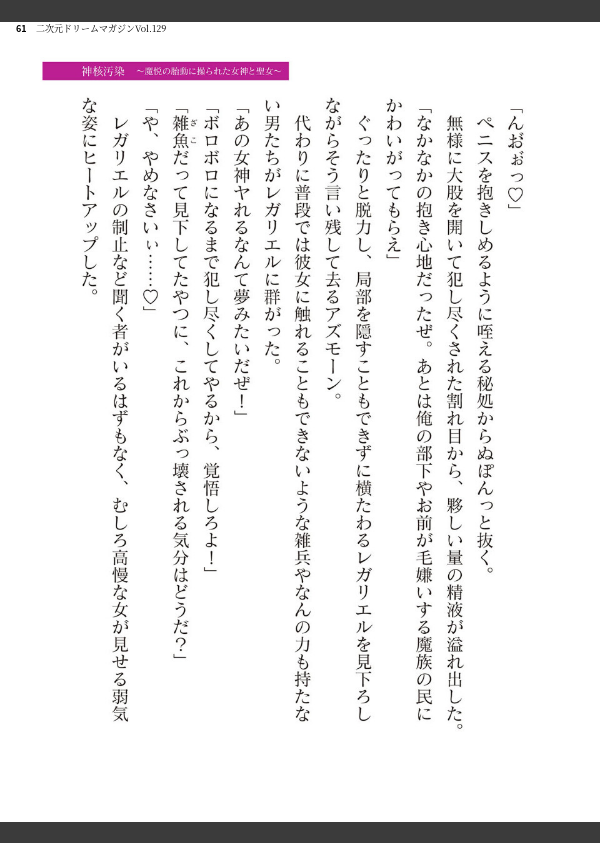 61 二次元ドリームマガジンVol.129
神核汚染 ～魔悦の胎動に操られた女神と聖女～
「んおぉっ♡」
ペニスを抱きしめるように咥える秘処からぬぽんっと抜く。
無様に大股を開いて犯し尽くされた割れ目から、夥しい量の精液が溢れ出した。
「なかなかの抱き心地だったぜ。あとは俺の部下やお前が毛嫌いする魔族の民に
かわいがってもらえ」
ぐったりと脱力し、局部を隠すこともできずに横たわるレガリエルを見下ろし
ながらそう言い残して去るアズモーン。
代わりに普段では彼女に触れることもできないような雑兵やなんの力も持たな
い男たちがレガリエルに群がった。
「あの女神ヤれるなんて夢みたいだぜ！」
「ボロボロになるまで犯し尽くしてやるから、覚悟しろよ！」
「雑魚だって見下してたやつに、これからぶっ壊される気分はどうだ？」
ざこ
「や、やめなさいぃ……♡」
レガリエルの制止など聞く者がいるはずもなく、むしろ高慢な女が見せる弱気
な姿にヒートアップした。